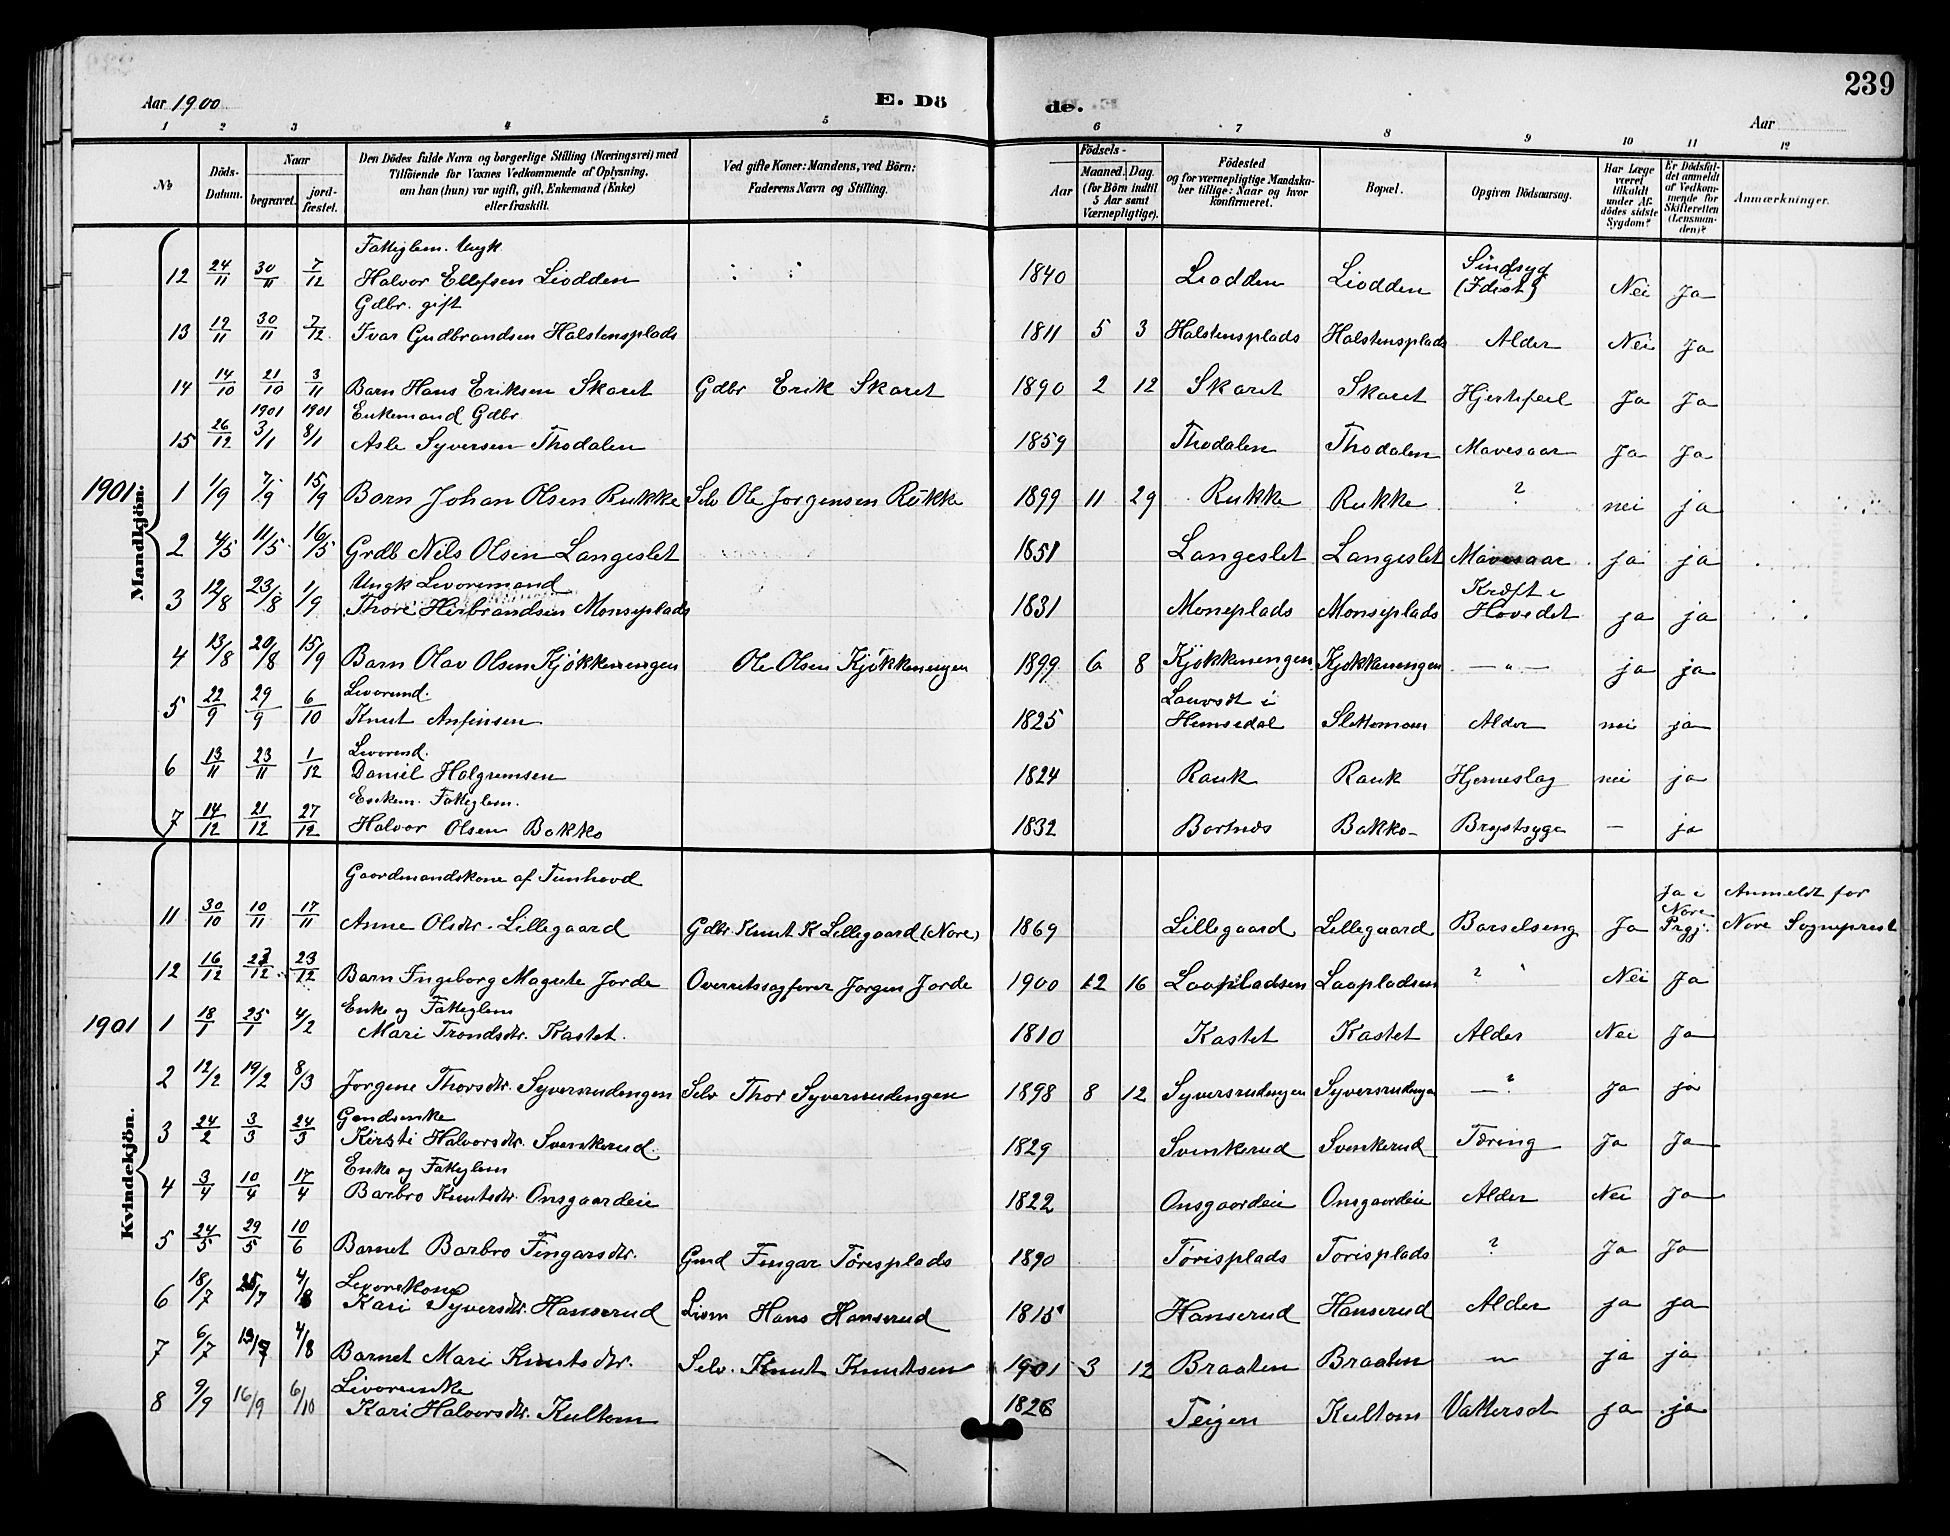 239
Aar 1900
E. Dö
de.
Aar
1 2 3 4 5 6 7 8 9 10 11 12
No
Döds-Datum.
Naar
begravet.
jord-fæstet.
Den Dödes fulde Navn og borgerlige Stilling (Næringsvei) med
Tilföiende for Voxnes Vedkommende af Oplysning,
om han (hun) var ugift, gift, Enkemand (Enke)
eller fraskilt.
Ved gifte Koner: Mandens, ved Börn:
Faderens Navn og Stilling.
Födsels-
Aar
Maaned. Dag.
(for Börn indtil
5 Aar samt
Værnepligtige).
Födested
og for værnepligtige Mandska-
ber tillige: Naar og hvor
konfirmeret.
Bopæl.
Opgiven Dödsaarsag.
Har Læge
været
tilkaldt
under Af-
dödes sidste
Sygdom?
Er Dödsfal-
det anmeldt
af Vedkom-
mende for
Skifteretten
(Lensman-
den)?
Anmærkninger.
Mandkjön.
Fattiglem. Ungk
12 24/11 30/11 7/12 Halvor Ellefsen Liodden 1840 Liodden Liodden Sindsyg (Idiot) Nei Ja
Gdbr. gift
13 19/11 30/11 7/12 Ivar Gudbrandsen Halstensplads 1811 5 3 Halstensplads Halstensplads Alder Nei Ja
14 14/10 21/10 3/11 Barn Hans Eriksen Skaret Gdbr Erik Skaret 1890 2 12 Skaret Skaret Hjertefeil Ja Ja
1901 1901 Enkemand Gdbr
15 26/12 3/1 8/1 Asle Syversen Thodalen 1859 Thodalen Thodalen Mavesaar Ja Ja
1901 1 1/9 7/9 15/9 Barn Johan Olsen Rukke Selv Ole Jorgensen Rukke 1899 11 29 Rukke Rukke ? nei ja
2 4/5 11/5 16/5 Grdb Nils Olsen Langeslet 1851 Langeslet Langeslet Mavesaar ja ja
Ungk Livoremand
3 12/8 23/8 1/9 Thore Herbrandsen Monseplads 1831 Moneplads Monseplads Kræft i Hovedet ja ja
4 13/8 20/8 15/9 Barn Olav Olsen Kjøkkenengen Ole Olsen Kjøkkenengen 1899 6 8 Kjøkkenengen Kjøkkenengen — " — ja ja
5 22/9 29/9 6/10 Knut Anfinsen 1825 Hemsedal Alder nei ja
6 13/11 23/11 1/12 Daniel Halgremsen 1824 Rauk Rauk Hjerneslag nei ja
Enkem. Fattiglem.
7 14/12 21/12 27/12 Halvor Olsen Bakko 1832 Bortnes Bakko Brystsyge — ja
Kvindekjön.
Gaardmandskone af Tunhovd
11 30/10 10/11 17/11 Anne Olsdtr. Lillegaard Gdbr. Knut K Lillegaard (Nore) 1869 Lillegaard Lillegaard Barselseng Ja Ja i Nore Prgj. Anmeldt for Nore Sogneprest
12 16/12 23/12 23/12 Barn Ingeborg Magrete Jorde Overretssagfører Jorgen Jorde 1900 12 16 Laapladsen Laapladsen ? Nei Ja
Enke og Fattiglem
1901 1 18/1 25/1 4/2 Mari Trondsdtr. Kastet. 1810 Kastet Kastet Alder Nei Ja
2 12/2 19/2 8/3 Jorgine Thorsdtr. Syversrudengen Selv Thor Syversrudengen 1898 8 12 Syversrudengen Syversrudengen — ? Ja ja
3 24/2 3/3 24/3 Kirsti Halvorsdtr. Svenkerud. 1829 Svenkerud Svenkerud Tæring Ja Ja
Enke og Fattiglem
4 3/4 10/4 17/4 Barbro Knutsdtr. Onsgaardeie 1822 Onsgaardeie Onsgaardeie Alder Nei Ja
5 24/5 29/5 10/6 Barnet Barbro Fingarsdtr. Gmd Fingar Tørisplads 1890 Tørisplads Torisplads ? Ja Ja
Livorekone
6 18/7 25/7 4/8 Kari Syversdtr. Hanserud Livm Hans Hanserud 1815 Hanserud Hanserud Alder ja ja
7 6/7 13/7 4/8 Barnet Mari Knutsdtr. Selv. Knut Knutsen 1901 3 12 Braaten Braaten — ja ja
Livorenke
8 9/9 16/9 6/10 Kari Halvorsdtr. Kultom 1826 Teigen Kultom Vattersot ja ja